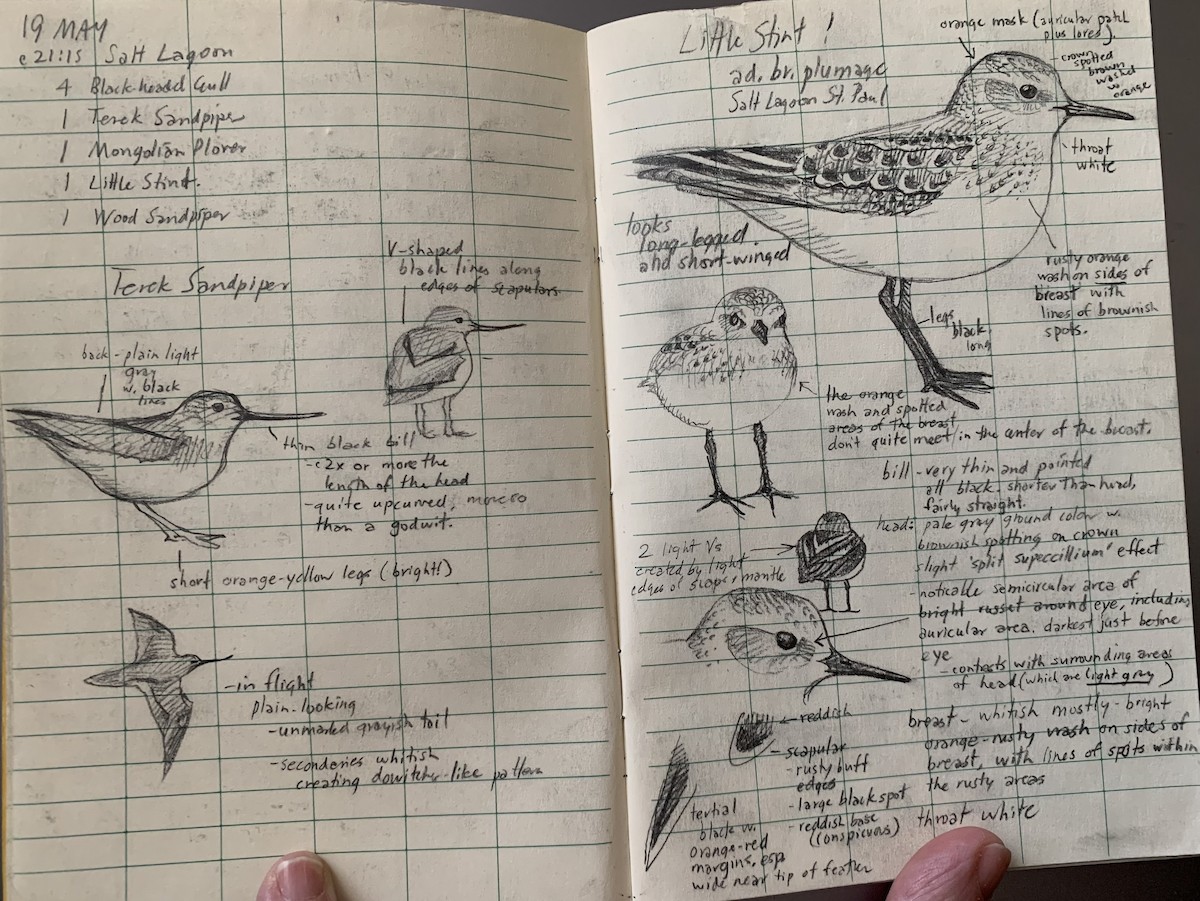 19 MAY
c 21:15 Salt Lagoon
4 Black-headed Gull
1 Terek Sandpiper
1 Mongolian Plover
1 Little Stint.
1 Wood Sandpiper
Terek Sandpiper
V-shaped
black lines along
edges of scapulars.
back - plain light
gray
w. black
lines
thin black bill
- c2x or more the
length of the head
- quite upcurved, more so
than a godwit.
short orange-yellow legs (bright!)
- in flight
plain-looking
- unmarked grayish tail
- seconderies whitish
creating dowitcher-like pattern
Little Stint!
ad. br. plumage
Salt Lagoon St. Paul
orange mask (auricular patch
plus lores).
crown
spotted
brown
washed
w.
orange
throat
white
looks
long-legged
and short-winged
rusty orange
wash on sides of
breast with
lines of brownish
spots.
legs
black
long
the orange
wash and spotted
areas of the breast
don't quite meet in the center of the breast.
bill - very thin and pointed
all black, shorter than head,
fairly straight.
head: pale gray ground color w.
brownish spotting on crown
slight 'split supercillium' effect
- noticable semicircular area of
bright russet around eye, including
auricular area. darkest just before
eye
- contrasts with surrounding areas
of head (which are light gray)
2 light Vs
created by light
edges of scaps + mantle
breast - whitish mostly - bright
orange-rusty wash on sides of
breast, with lines of spots within
the rusty areas
throat white
reddish
- scapular
- rusty buff
edges
- large black spot
- reddish base
(conspicuous)
tertial
black w.
orange-red
margins, esp
wide near tip of feather